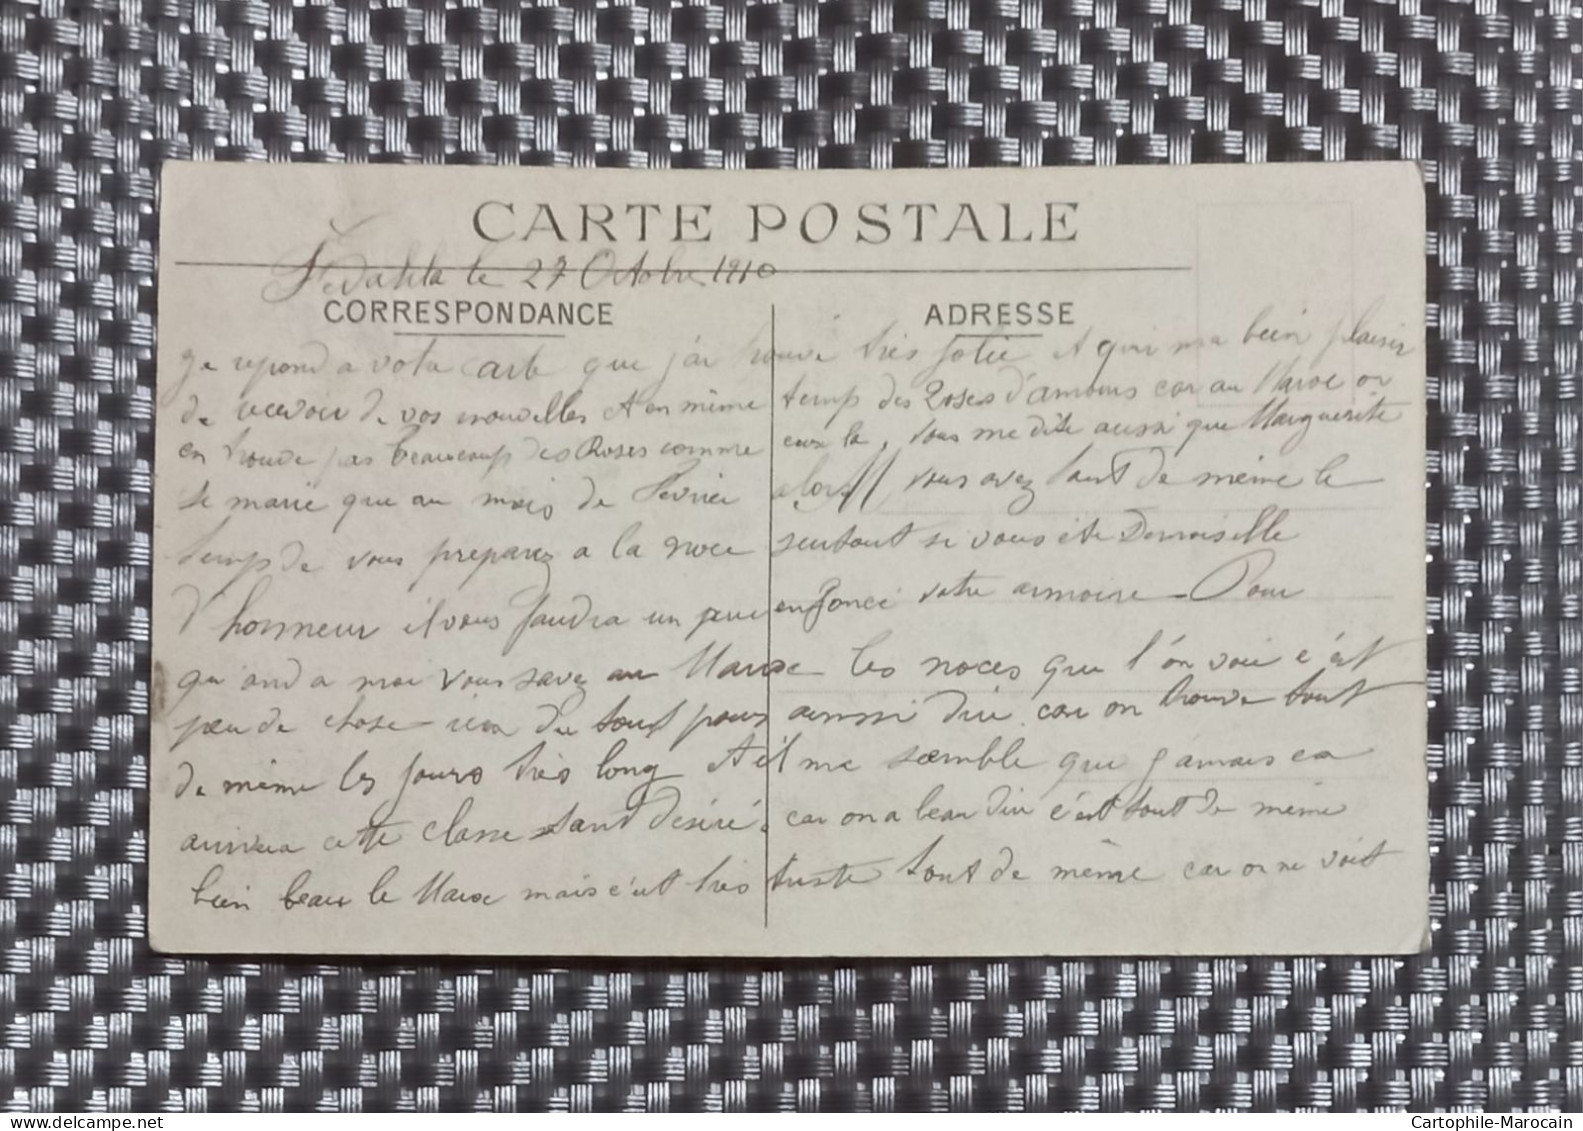 CARTE POSTALE
Fedahla le 27 Octobre 1910
CORRESPONDANCE
ADRESSE
Je repond a votre carte que j'ai trouvé très jolie et qui m'a bein plaisir
de recevoir de vos nouvelles et en même temps des Roses d'amours car au Maroc on
en trouve pas beaucoup des Roses comme ceux la, vous me dite aussi que Marguerite
se marie que au mois de Fevrier alors vous avez tout de même le
temps de vous preparez a la noce surtout si vous ete Demoiselle
d'honneur il vous faudra un peu enfoncé votre armoire - Pour
qu'and a moi vous savez au Maroc les noces que l'on voie c'est
peu de chose rien du tout pour ainssi dire car on trouve tout
de même les jours très long et il me semble que jamais ca
arrivera cette classe tant désiré, car on a beau dire c'est tout de même
bein beau le Maroc mais c'est très triste tout de même car on ne voit
delcampe.net
Cartophile-Marocain